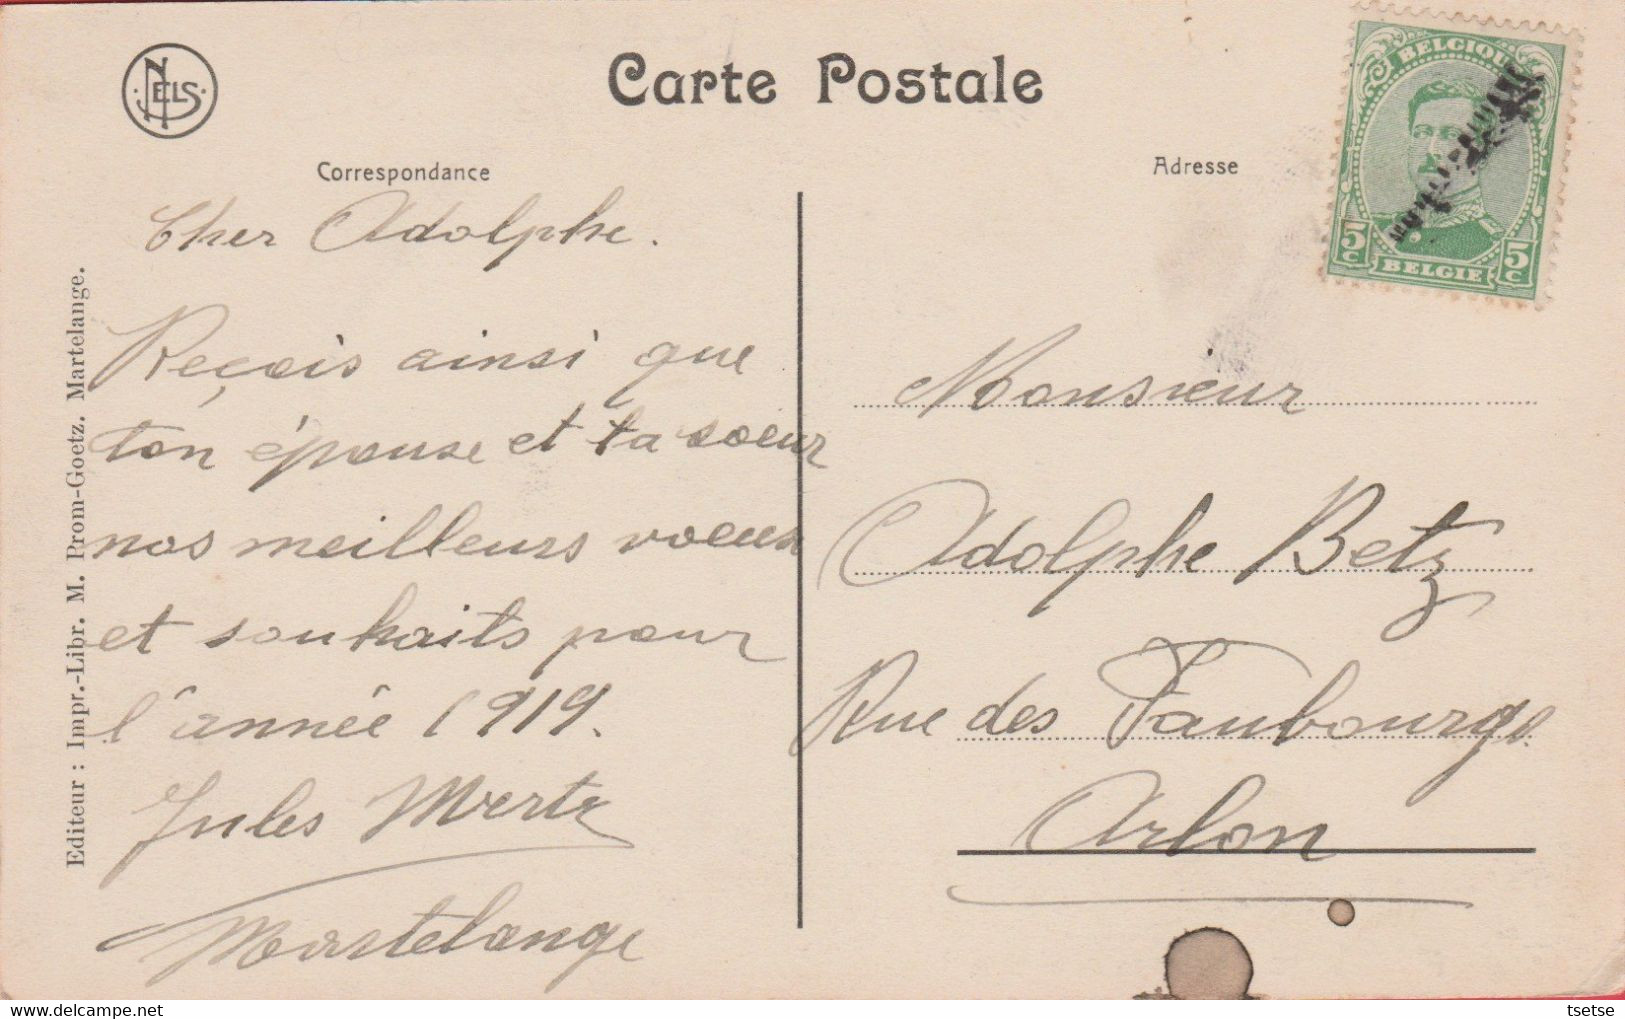 NELS
Carte Postale
BELGIQUE
5c
5c
BELGIE
Correspondance
Adresse
Cher Adolphe.
Reçois ainsi que
ton épouse et ta soeur
nos meilleurs voeux
et souhaits pour
l'année 1919.
Jules Mertz
Martelange
Monsieur
Adolphe Betz
Rue des Faubourgs
Arlon
Editeur : Impr.-Libr. M. Prom-Goetz. Martelange.
tsetse